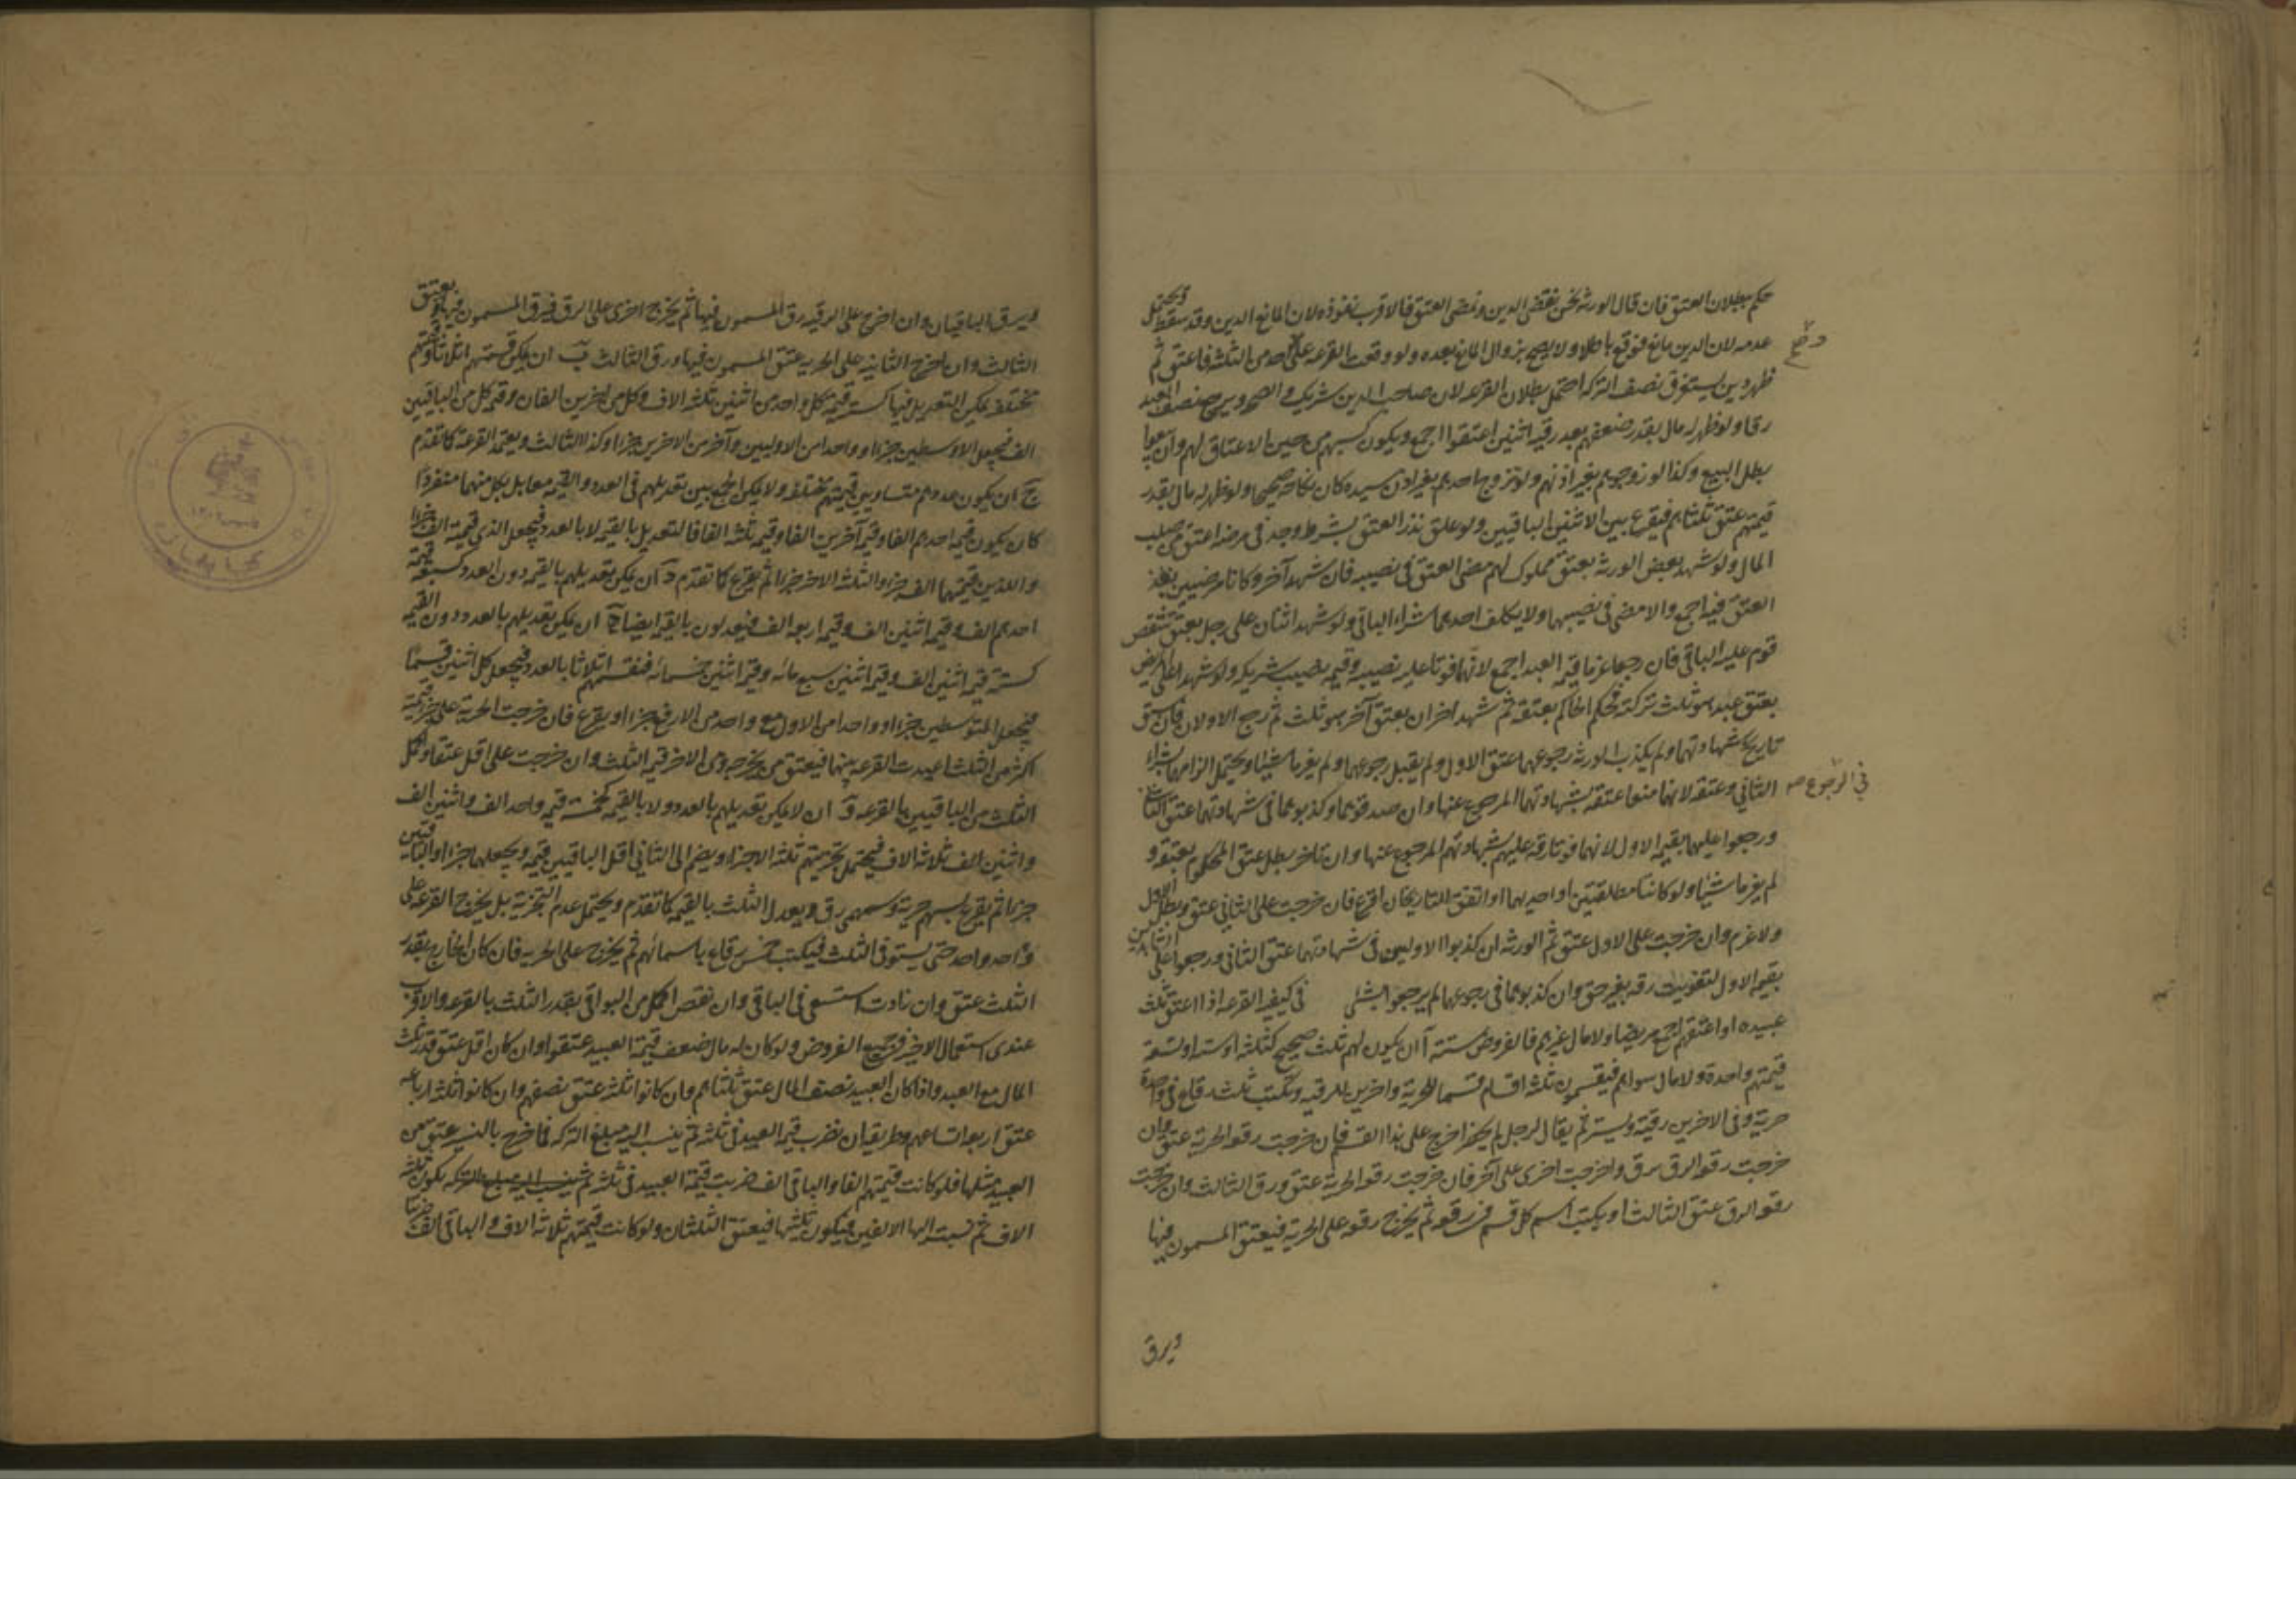 حكم ببطلان العتق فان قال الورثه نحن نقضى الدين ونمضى العتق فالاقرب نفوذه لان المانع الدين وقد سقط ويحتمل
عدمه لان الدين مانع فوقع باطلا ولا يصح بزوال المانع بعده ولو وقعت القرعه على احدى الثلثه فاعتق ثم
ظهر دين يستغرق نصف التركه احتمل بطلان القرعه لان صاحب الدين شريك والصحه ويرجع نصف العبد
رقا ولو ظهر له مال بقدر ضعفهم بعد رقيه اثنين اعتقوا اجمع ويكون كسبهم من حين الاعتاق لهم وان بيعوا
بطل البيع وكذا لو زوجهم بغير اذنهم ولو تزوج احدهم بغير اذن سيده كان نكاحه صحيحا ولو ظهر له مال بقدر
قيمتهم عتق ثلثاهم فيقرع بين الاثنين الباقيين ولو علق نذر العتق بشرط وجد فى مرضه اعتق من صلب
المال ولو شهد بعض الورثه بعتق مملوك لهم مضى العتق فى نصيبه فان شهد آخر وكانا مرضيين نفذ
العتق فيه اجمع والا مضى فى نصيبهما ولا يكلف احدهما شراء الباقى ولو شهد اثنان على رجل بعتق شقص
قوم عليه الباقى فان رجعا غرما قيمه العبد اجمع لانهما فوتا عليه نصيبه وقيمه نصيب شريكه ولو شهدا على المريض
بعتق عبد هو ثلث تركته فحكم الحاكم بعتقه ثم شهد اخران بعتق آخر هو ثلث ثم رجع الاولان فان سبق
تاريخ شهادتهما ولم يكذب الورثه رجوعهما عتق الاول ولم يقبل رجوعهما ولم يغرما شيئا ويحتمل الزامهما بشراء
الثانى وعتقه لانهما منعوا عتقه بشهادتهما المرجوع عنها وان صدقوهما وكذبوهما فى شهادتهما عتق الثانى
فى الرجوع صح
ورجعوا عليهما بقيمه الاول لانهما فوتا رقه عليهم بشهادتهم المرجوع عنها وان تاخر بطل عتق المحكوم بعتقه و
لم يغرما شيئا ولو كانتا مطلقتين او احديهما او اتفق التاريخان اقرع فان خرجت على الثانى عتق وبطل الاول
ولا غرم وان خرجت على الاول عتق ثم الورثه ان كذبوا الاوليين فى شهادتهما عتق الثانى ورجعوا على الشاهدين
بقيمه الاول لتفويت رقه بغير حق وان كذبوهما فى رجوعهما لم يرجعوا بشئ فى كيفيه القرعه اذا اعتق ثلث
عبيده او اعتقهم اجمع مريضا ولا مال غيرهم فالفروض ستة آ ان يكون لهم ثلث صحيح كثلثه او ستة او تسعة
قيمتهم واحدة ولا مال سواهم فيقسمون ثلثه اقسام قسما للحرية واخرين للرقيه وتكتب ثلث رقاع فى واحدة
حرية وفى الاخرين رقية وتستر ثم يقال لرجل لم يحضر اخرج على هذا القسم فان خرجت رقعه الحرية عتق وان
خرجت رقعه الرق رق واخرجت اخرى على آخر فان خرجت رقعه الحرية عتق ورق الثالث وان خرجت
رقعه الرق عتق الثالث او يكتب اسم كل قسم فى رقعه ثم يخرج رقعه على الحرية فيعتق المسمون فيها
ويرق
ويرق الباقيان وان اخرج على الرقيه رق المسمون فيها ثم يخرج اخرى على الرق فيرق المسمون فيها ويعتق
الثالث وان اخرج الثانيه على الحريه عتق المسمون فيها ورق الثالث ب ان يمكن قسمتهم اثلاثا وقيمتهم
مختلفه يمكن التعديل فيها كستة قيمة كل واحد من اثنين ثلثه الاف وكل من اخرين الفان وقيمه كل من الباقيين
الف فيجعل الاوسطين جزءا وواحدا من الاوليين وآخر من الاخرين جزءا وكذا الثالث ويعتمد القرعة كما تقدم
ج ان يكون عددهم متساويين قيمتهم مختلفه ولا يمكن الجمع بين تعديلهم فى العدد والقيمه معا بل بكل منهما منفردا
كان يكون قيمه احدهم الفا وقيمه آخرين الفا وقيمه ثلثه الفا فالتعديل بالقيمه لا بالعدد فيجعل الذى قيمته الف جزءا
واللذين قيمتهما الف جزء والثلثه الاخر جزءا ثم يقرع كما تقدم د ان يمكن تعديلهم بالقيمه دون العدد كسبعه قيمة
احدهم الف وقيمه اثنين الف وقيمه اربعه الف فيعدلون بالقيمه ايضا ه ان يمكن تعديلهم بالعدد دون القيمه
كستة قيمه اثنين الف وقيمه اثنين سبع مائه وقيمه اثنين خمسمائه فنقسمهم اثلاثا بالعدد فيجعل كل اثنين قسما
فيجعل المتوسطين جزءا وواحدا من الاول مع واحد من الارفع جزءا ويقرع فان خرجت الحرية على جزء قيمته
اكثر من الثلث اعيدت القرعه بينهما فيعتق من يخرج ومن الاخر قيمه الثلث وان خرجت على اقل عتقا واكمل
الثلث من الباقيين بالقرعه و ان لا يمكن تعديلهم بالعدد ولا بالقيمه كخمسة قيمه واحد الف واثنين الف
واثنين الف ثلاثه الاف فيحتمل تجزيتهم ثلثه الاجزاء ويضم الى الثانى اقل الباقيين قيمه ويجعلهما جزءا والباقيين
جزءا ثم يقرع بسهم حرية وسهمى رق ويعدل الثلث بالقيمه كما تقدم ويحتمل عدم التجزية بل يخرج القرعه على
واحد واحد حتى يستوفى الثلث فيكتب خمس رقاع باسمائهم ثم يخرج على الحريه فان كان الخارج بقدر
الثلث عتق وان زادت استسعى فى الباقى وان نقص اكمل من البواقى بقدر الثلث بالقرعه والاقرب
عندى استعمال الاخير فى جميع الفروض ولو كان له مال ضعف قيمة العبيد عتقوا وان كان اقل عتق قدر ثلث
المال مع العبيد واذا كان العبيد نصف المال عتق ثلثاهم وان كانوا ثلثه عتق نصفهم وان كانوا ثلثه ارباعه
عتق اربعه اتساعهم وطريقه ان نضرب قيمه العبيد فى ثلثه ثم ينسب اليه مبلغ التركه فما خرج بالنسبه عتق من
العبيد مثلها فلو كانت قيمتهم الفا والباقى الف ضربت قيمة العبيد فى ثلثه ثم ينسب اليه مبلغ التركه يكون ثلثه
الاف ثم نسبت اليها الالفين فيكون ثلثيها فيعتق الثلثان ولو كانت قيمتهم ثلاثه الاف والباقى الف ضربتا